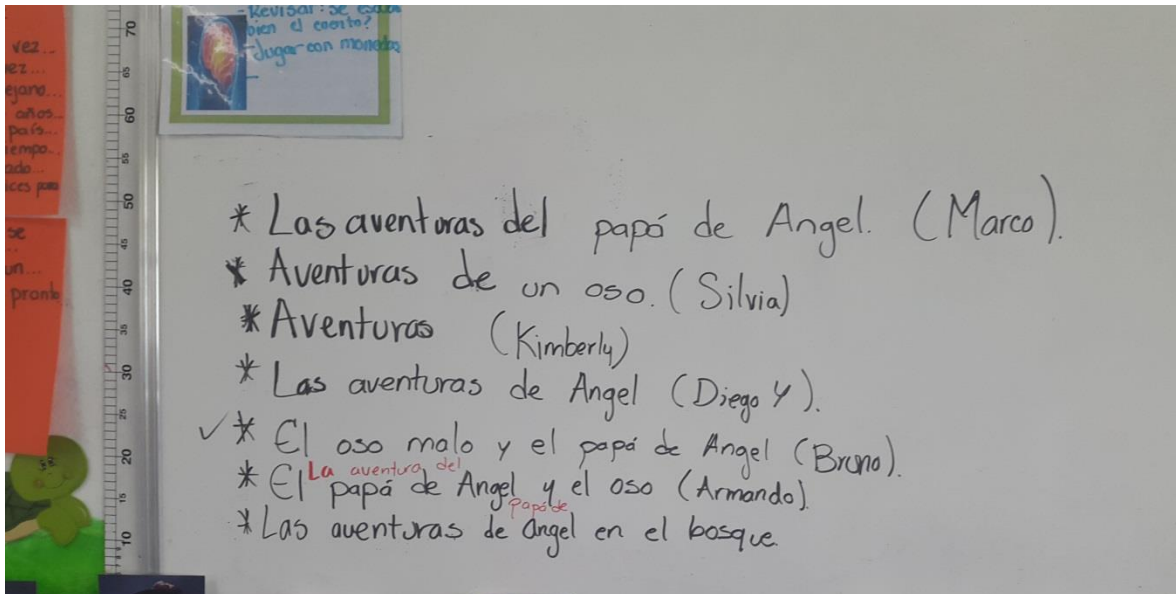 vez...
ez...
ejano...
años...
país...
iempo...
ado...
ices para
se
un...
pronto
70
65
60
55
50
45
40
35
30
25
20
15
10
- Revisar: se
bien el cuento?
- Jugar con monedas
-
* Las aventuras del papá de Angel. (Marco).
* Aventuras de un oso. (Silvia)
* Aventuras (Kimberly)
* Las aventuras de Angel (Diego Y).
✓ * El oso malo y el papá de Angel (Bruno).
La aventura del
* El papá de Angel y el oso (Armando).
papá de
* Las aventuras de angel en el bosque